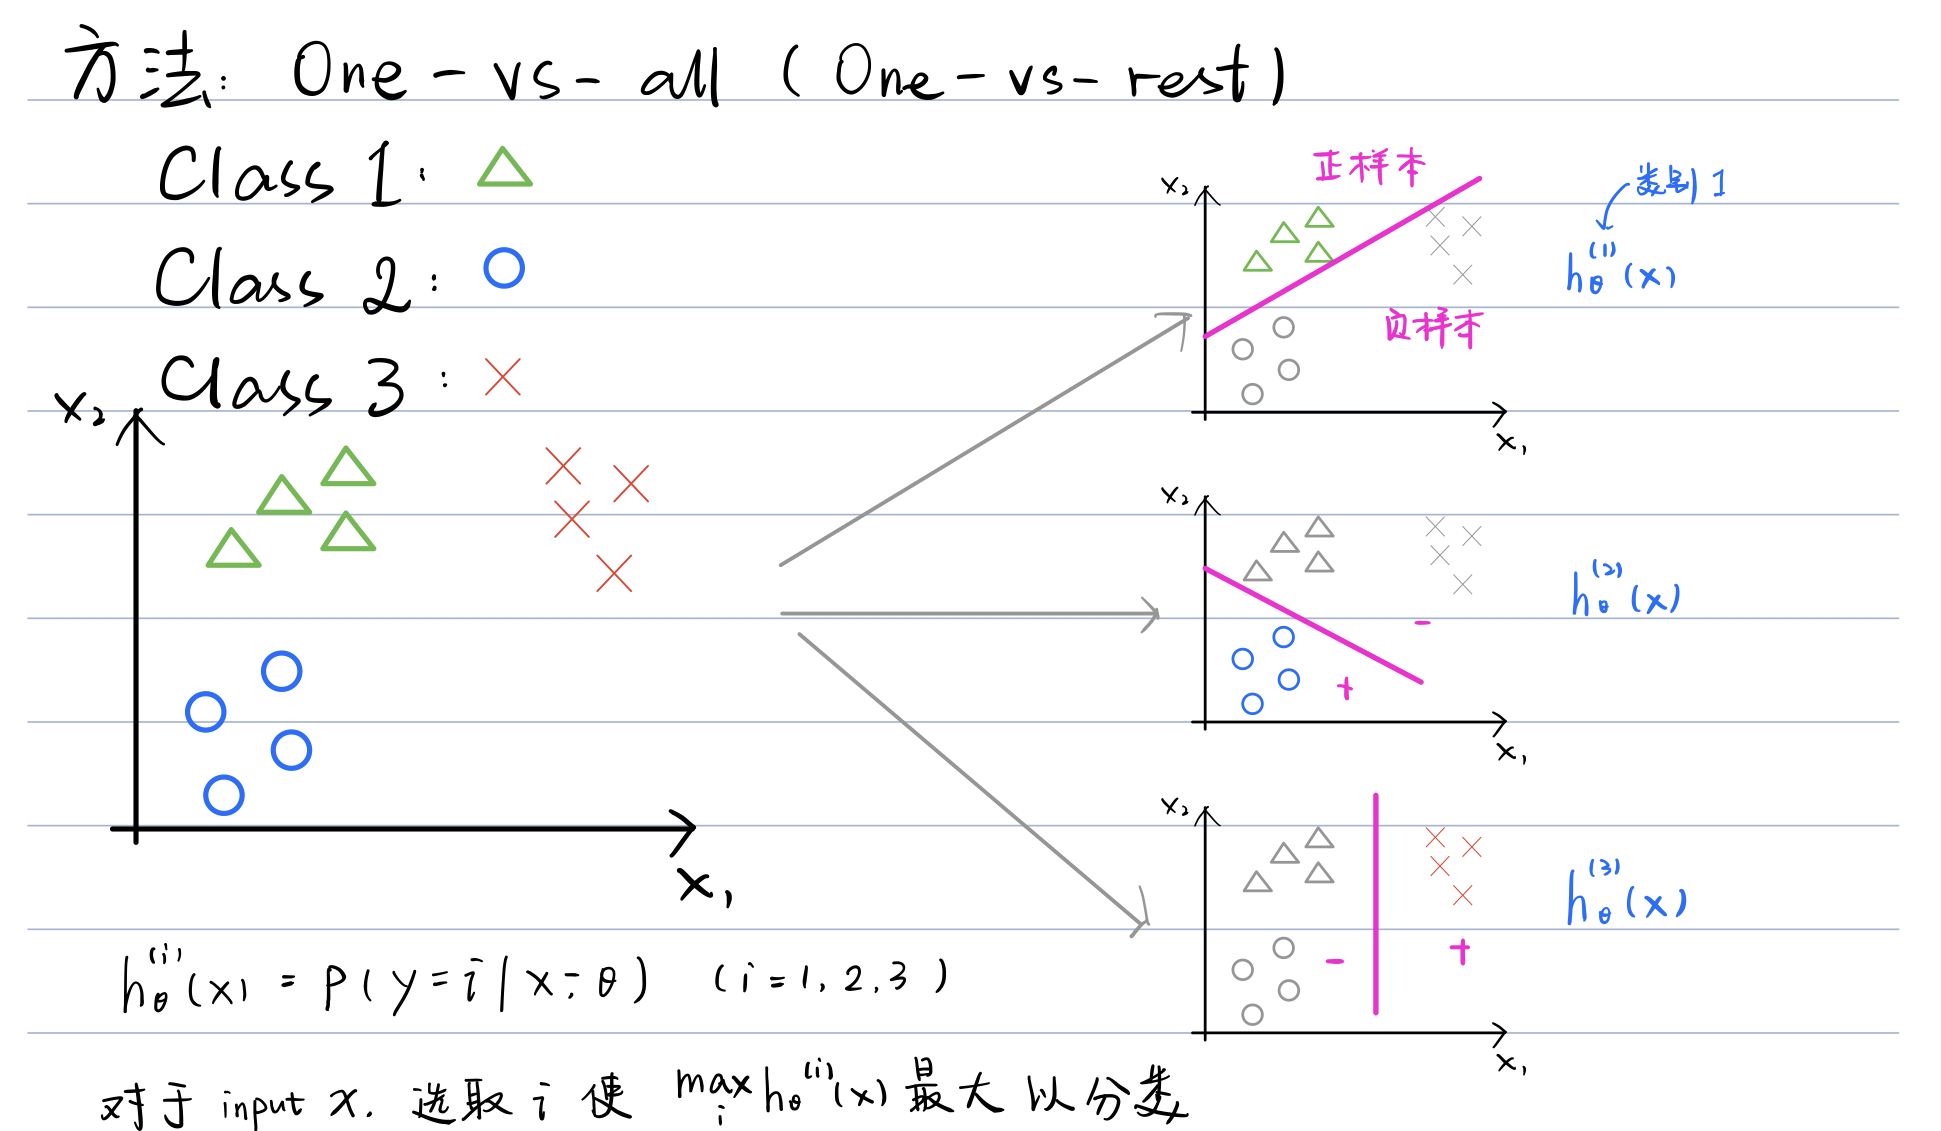 方法: One-vs-all (One-vs-rest)
Class 1:
Class 2:
Class 3:
x₂
x₁
x₂
正样本
负样本
x₁
类别1
h_θ^(1)(x)
x₂
-
+
x₁
h_θ^(2)(x)
x₂
-
+
x₁
h_θ^(3)(x)
h_θ^(i)(x) = P(y=i|x;θ) (i=1,2,3)
对于input x. 选取i使 max_i h_θ^(i)(x)最大以分类